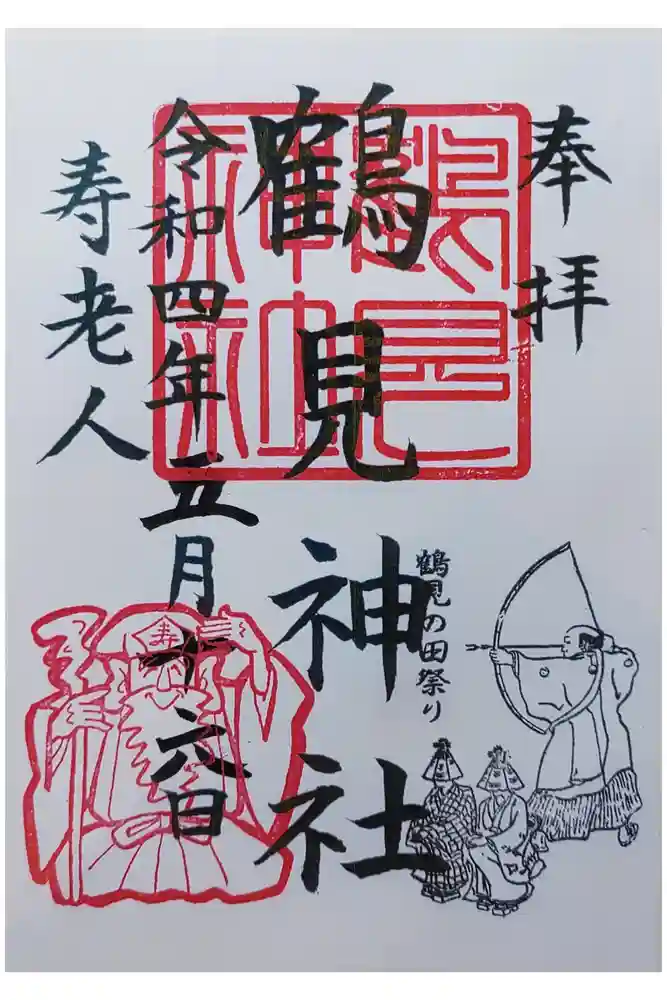 奉拝
鶴見神社
鶴見の田祭り
令和四年五月十六日
寿老人
寿
鶴見神社